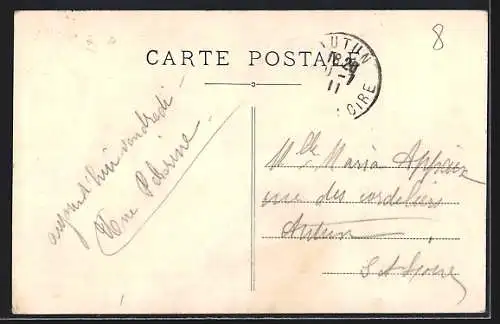 8
CARTE POSTALE
AUTUN
18 20
-7
11
LOIRE
aujourd'hui vendredi
Une Pelerine
Mlle Maria
rue des cordeliers
Autun
S. & Loire